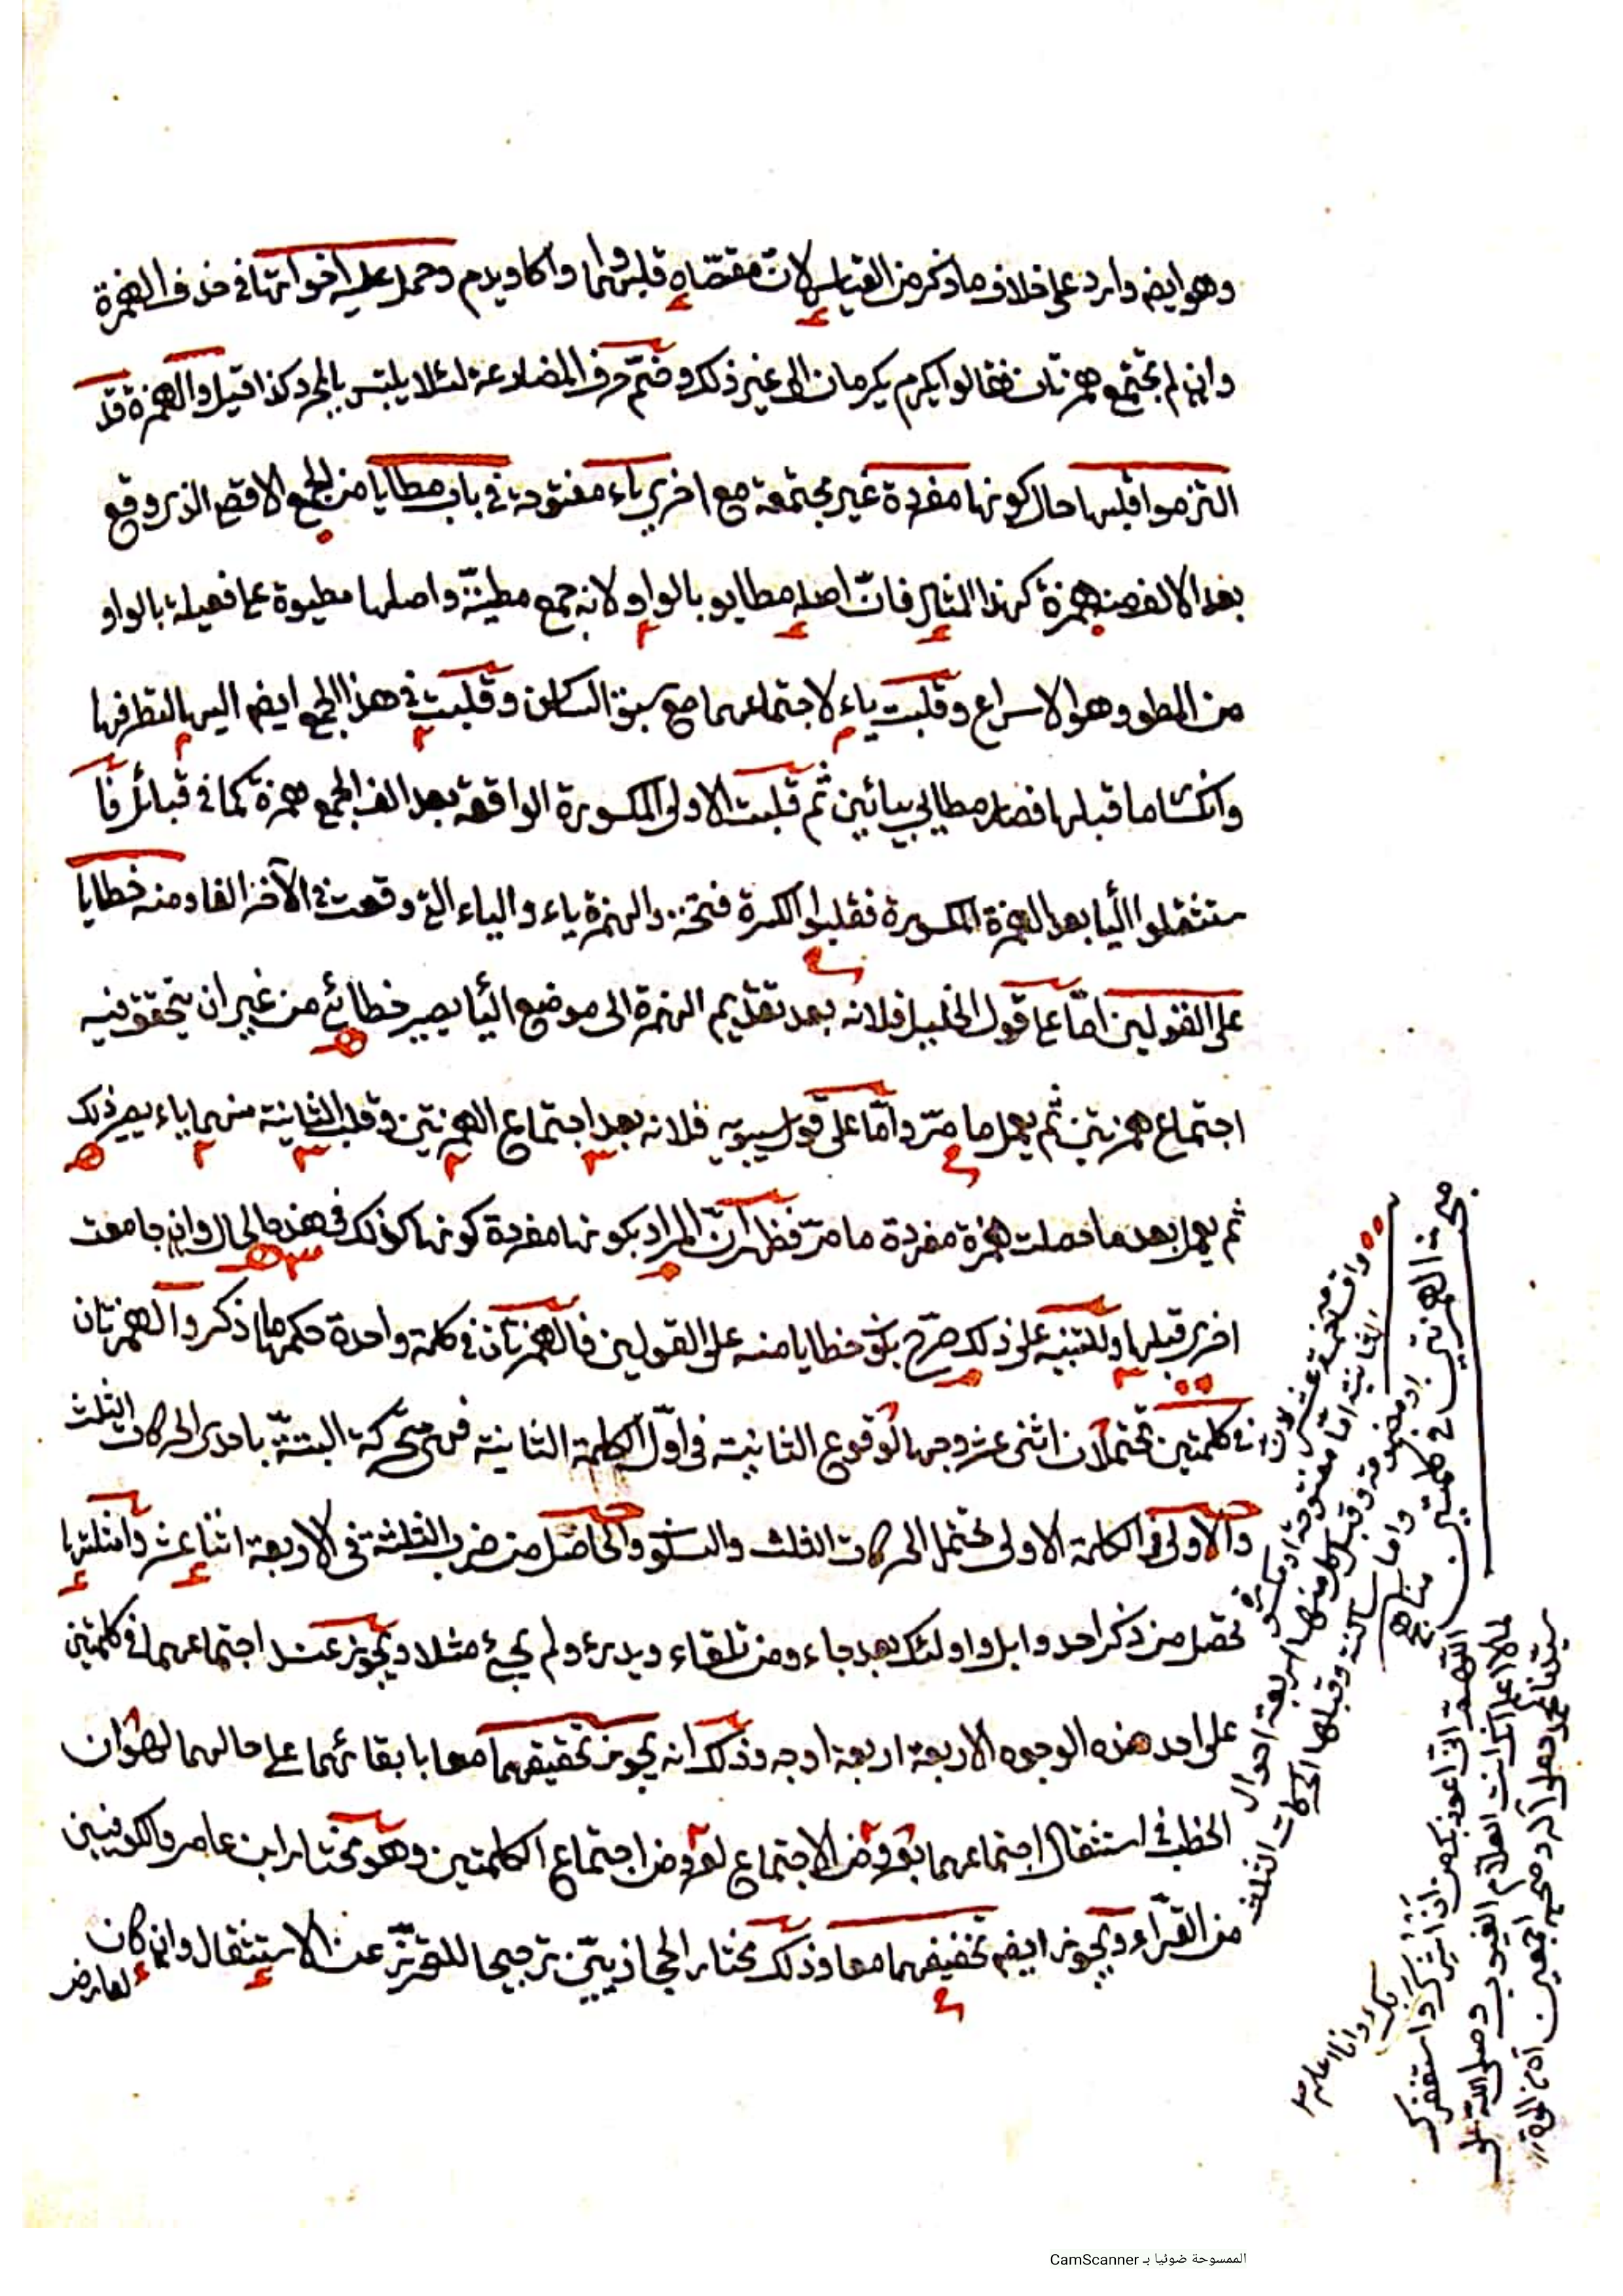 وهو ايضم وارد على خلاف ما ذكر من القياس لان مقتضاه قلبها واوا كاويدم وحمل عليه اخواتها في حذف الهمزة
وان لم يجتمع همزتان فقالوا يكرم يكرمان الى غير ذلك وضم حرف المضارعة لئلا يلتبس بالمجرد كذا قيل والهمزة قد
التزموا قلبها حال كونها مفردة غير مجتمعة مع اخرى ياء مفتوحة في باب مطايا من الجمع الاقصى الذى وقع
بعد الالف منه همزة كهذا المثال فان اصله مطايو بالواو لانه جمع مطيّة واصلها مطيوة على فعيلة بالواو
من المطو وهو الاسراع وقلبت ياء لاجتماعهما مع سبق الساكن وقلبت في هذا الجمع ايضم اليها لتطرفها
وانكسار ما قبلها فصار مطايى بيائين ثم قلبت الاولى المكسورة الواقعة بعد الف الجمع همزة كما في قبائل فا
ستثقلوا اليا بعد الهمزة المكسورة فقلبوا الكسرة فتحة والهمزة ياء والياء التى وقعت في الآخر الفا ومنه خطايا
على القولين امّا على قول الخليل فلانه بعد تقديم الهمزة الى موضع اليا يصير خطائي من غير ان يتحقق فيه
اجتماع همزتين ثم يعمل ما مرّ وامّا على قول سيبويه فلانه بعد اجتماع الهمزتين وقلب الثانية منهما ياء يصير ذلك
ثم يعمل بعد ما حصلت همزة مفردة ما مرّ فظهر ان المراد بكونها مفردة كونها كذلك في هذه الحال وان جامعت
اخرى قبلها وللتنبيه على ذلك صرّح بكون خطايا منه على القولين فالهمزتان في كلمة واحدة حكمهما ما ذكر والهمزتان
في كلمتين تحتملان اثنى عشر وجها لوقوع الثانية في اوّل الكلمة الثانية فهى متحركة البتة باحدى الحركات الثلث
والاولى في الكلمة الاولى تحتمل الحركات الثلث والسكون والحاصل من ضرب الثلثة في الاربعة اثنا عشر وامثلتها
تحصل من ذكر احد وابل واولئك بعد جاء ومن تلقاء ويدرئ ولم يجئ مثلا ويجوز عند اجتماعهما في كلمتين
على احد هذه الوجوه الاربعة اربعة اوجه وذلك انه يجوز تحقيقهما معا بابقائهما على حالهما لهوان
الخطب في استثقال اجتماعهما بعروض الاجتماع لعروض اجتماع الكلمتين وهو مختار ابن عامر والكوفيين
من القرّاء ويجوز ايضم تخفيفهما معا وذلك مختار الحجازيين ترجيحا للتحرّز عن الاستثقال وان كان
لعارض
مبحث الهمزتين في كلمتين
الثانية امّا مفتوحة او مكسورة
او مضمومة وقبل كل منها اربعة احوال
وقبلها الحركات الثلث
اللهم انى اعوذ بك من ان اشرك بك وانا اعلم واستغفرك
لما لا اعلم انك انت العلام الغيوب وصلى الله على
سيدنا محمد وعلى آله وصحبه اجمعين
الممسوحة ضوئيا بـ CamScanner